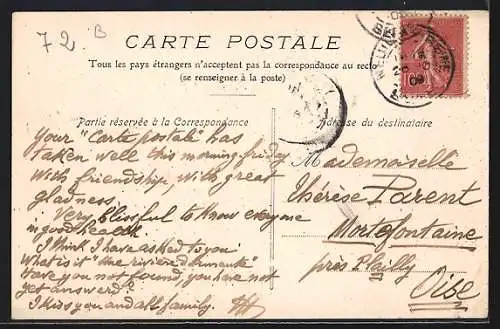 72 B
CARTE POSTALE
Tous les pays étrangers n'acceptent pas la correspondance au recto
(se renseigner à la poste)
Partie réservée à la Correspondance
Adresse du destinataire
Your "Carte postale" has
taken well this morning friday
With friendship, with great
gladness.
Very blissful to know everyone
in good health
I think I have asked to you
What is it "Une rivière
Have you not found, you have not
yet answered?
I kiss you and all family.
Mademoiselle
Thérèse Parent
Mortefontaine
près Plailly
Oise